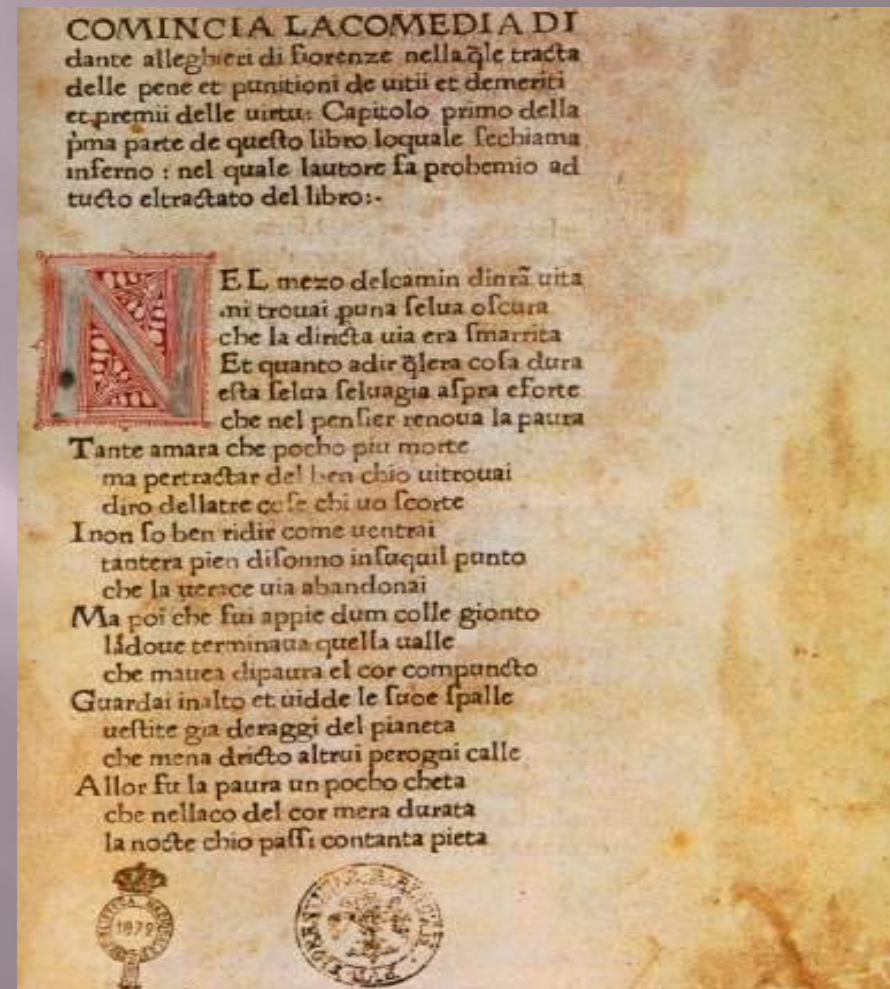 COMINCIA LACOMEDIA DI
dante alleghieri di fiorenze nella q̃le tracta
delle pene et punitioni de uitii et demeriti
et premii delle uirtu: Capitolo primo della
p̃ma parte de queſto libro loquale ſechiama
inferno : nel quale lautore fa prohemio ad
tucto eltractato del libro:-
NEL mezo delcamin dinrã uita
mi trouai ꝑuna ſelua oſcura
che la diricta uia era ſmarrita
Et quanto adir q̃lera coſa dura
eſta ſelua ſeluagia aſpra eforte
che nel penſier renoua la paura
Tante amara che pocho piu morte
ma pertractar del ben chio uitrouai
diro dellatre coſe chi uo ſcorte
Inon ſo ben ridir come uentrai
tantera pien diſonno inſuquil punto
che la uerace uia abandonai
Ma poi che fui appie dum colle gionto
ládoue terminaua quella ualle
che mauea dipaura el cor compuncto
Guardai inalto et uidde le ſuoe ſpalle
ueſtite gia deraggi del pianeta
che mena dricto altrui perogni calle
Allor fu la paura un pocho cheta
che nellaco del cor mera durata
la nocte chio paſſi contanta pieta
1879